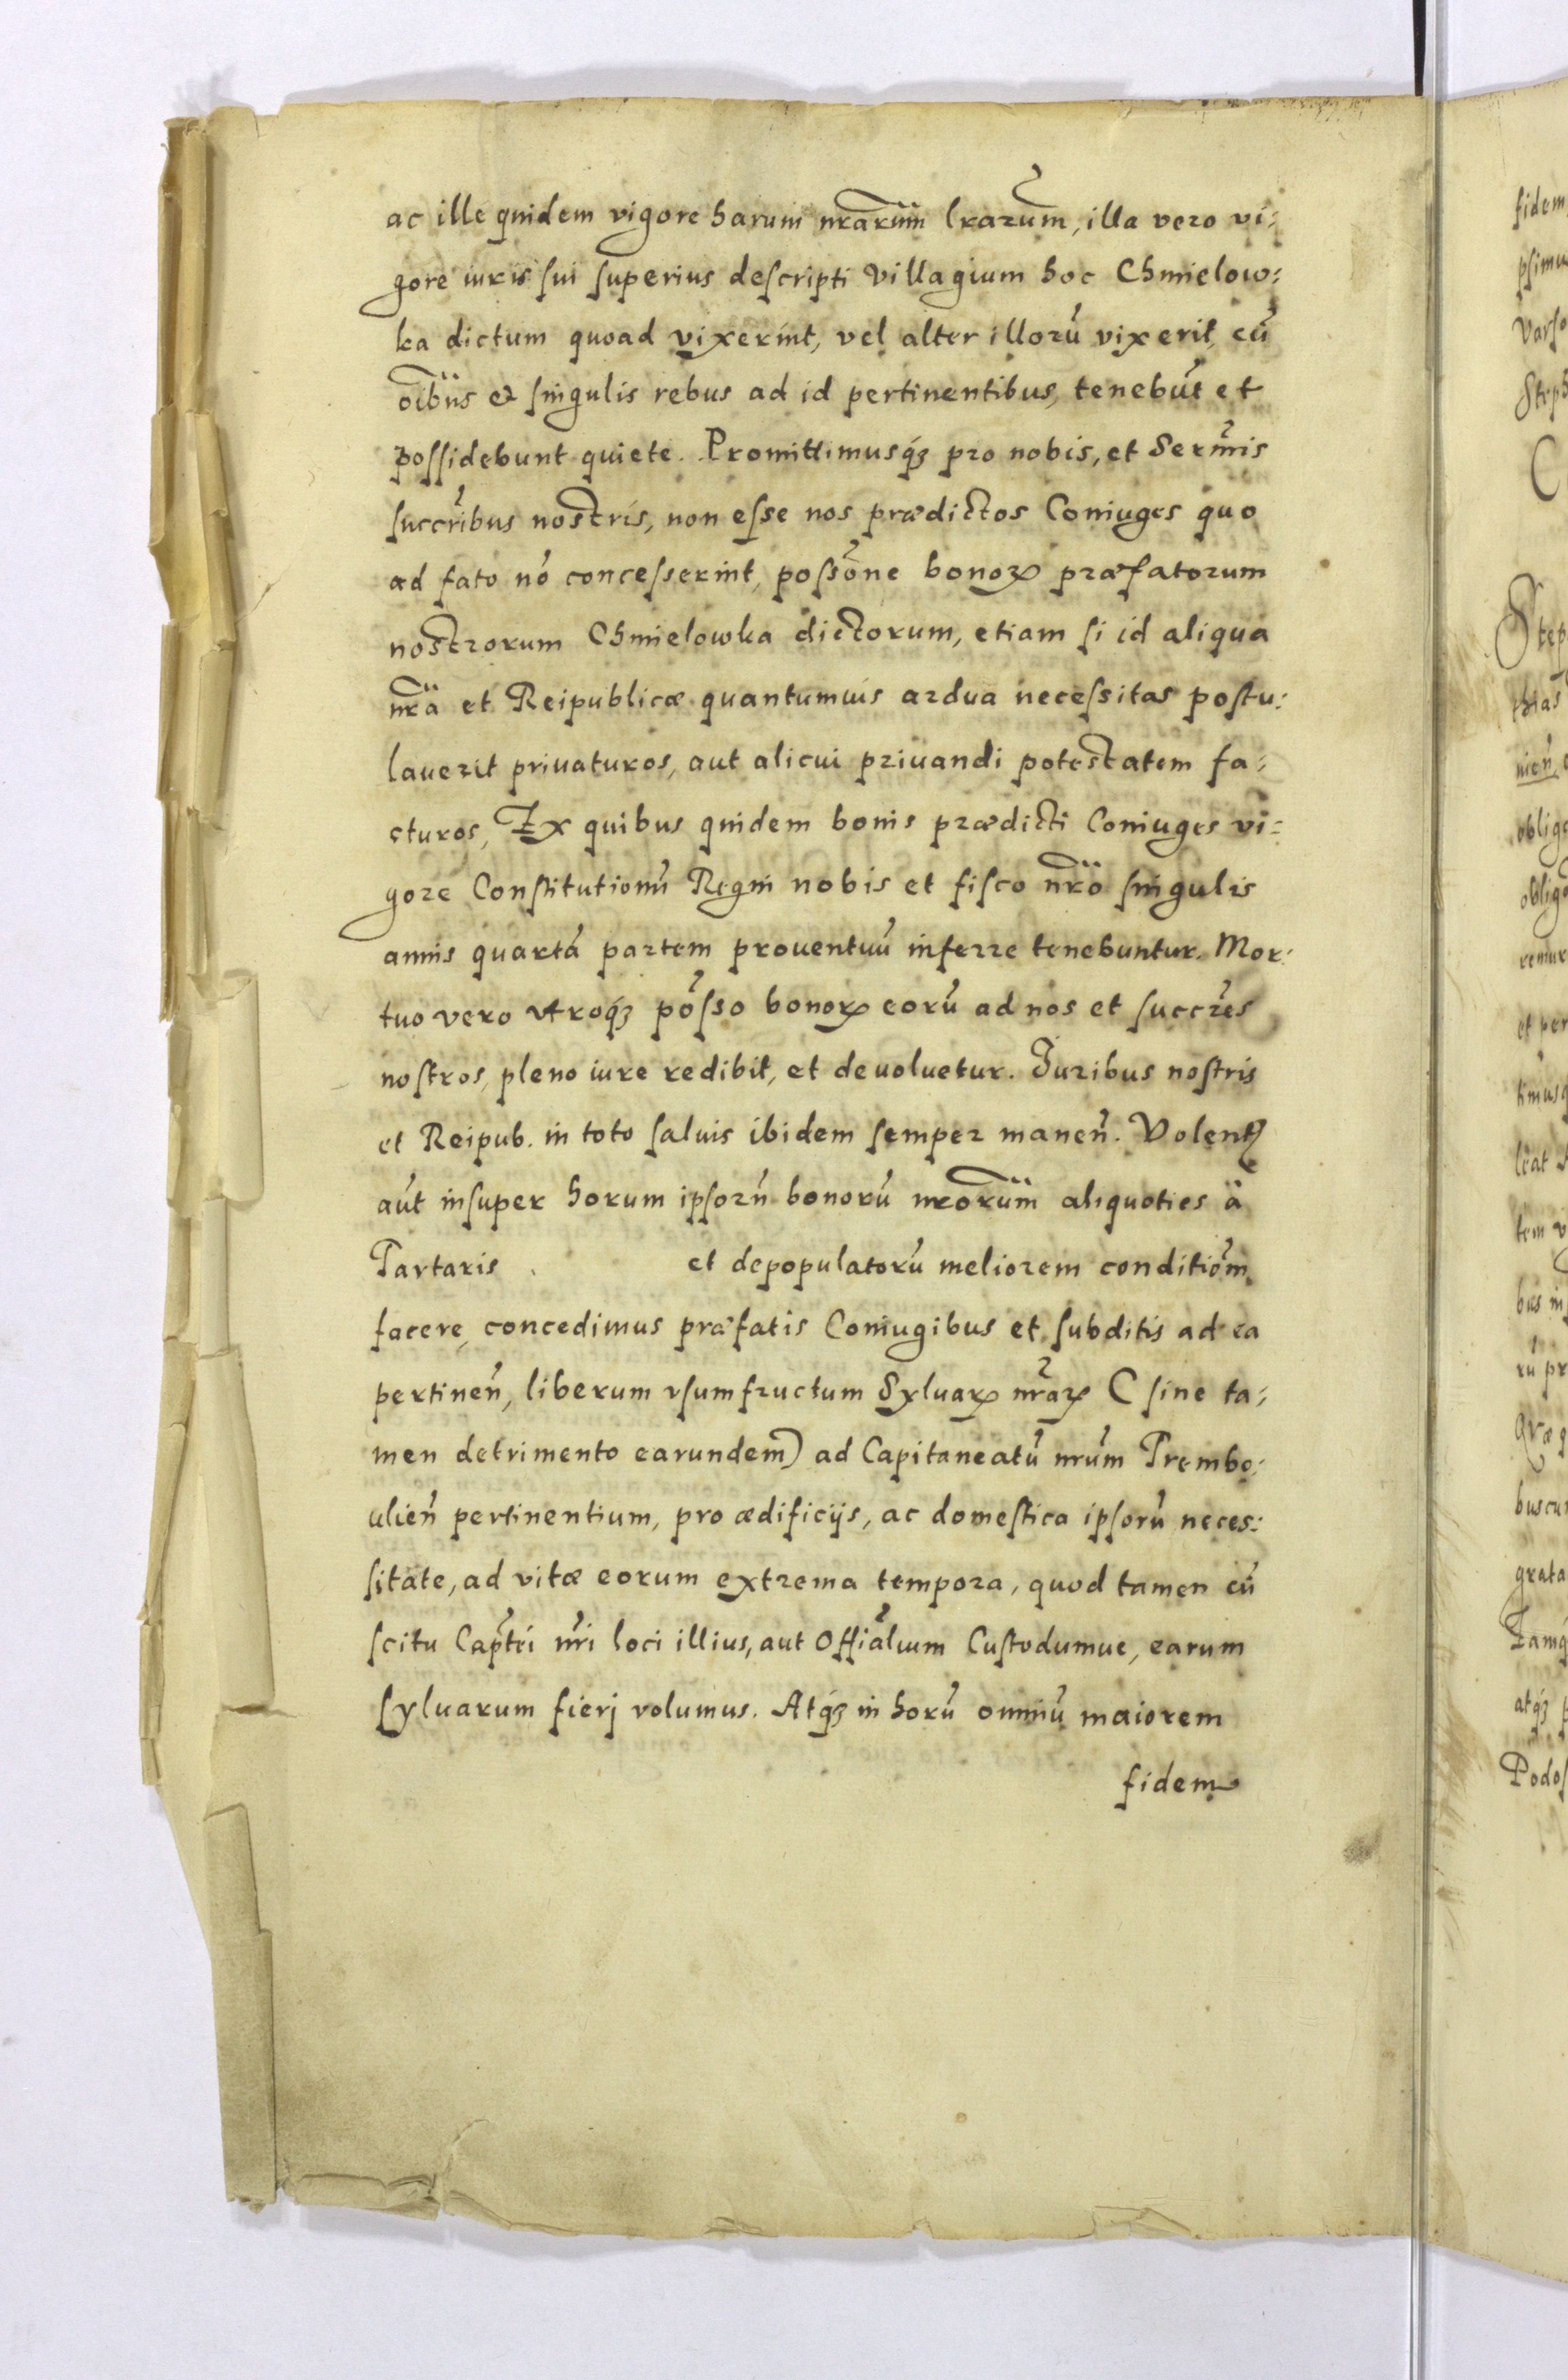 ac ille quidem vigore harum nrarum lrarum, illa vero vi:
gore iuris sui superius descripti Villagium hoc Chmielow:
ka dictum quoad vixerint, vel alter illorū vixerit, cū
oibus & singulis rebus ad id pertinentibus, tenebūt et
possidebunt quiete. Promittimusq́ꝫ pro nobis, et Serm̃is
succr̃ibus nostris, non esse nos prædictos Coniuges quo
ad fato nō concesserint, possōne bonoꝝ præfatorum
nostrorum Chmielowka dictorum, etiam si id aliqua
nra et Reipublicæ quantumuis ardua necessitas postu:
lauerit priuaturos, aut alicui priuandi potestatem fa:
cturos, Ex quibus quidem bonis prædicti Coniuges vi:
gore Constitutionū Regni nobis et fisco nro singulis
annis quartā partem prouentuū inferre tenebuntur. Mor:
tuo vero vtroq́ꝫ pōsso bonoꝝ eorū ad nos et succr̃es
nostros, pleno iure redibit, et deuoluetur. Iuribus nostris
et Reipub. in toto saluis ibidem semper maneñ. Volentꝭ
aūt insuper horum ipsorū bonorū nrorum aliquoties à
Tartaris et depopulatorū meliorem conditiōm
facere, concedimus præfatis Coniugibus et subditis ad ea
pertineñ, liberum vsumfructum Syluaꝝ nr̃aꝝ (sine ta:
men detrimento earundem) ad Capitaneatū nrūm Trembo:
ulieñ pertinentium, pro ædificijs, ac domestica ipsorū neces:
sitate, ad vitæ eorum extrema tempora, quod tamen cū
scitu Cap̃tei nr̃i loci illius, aut Offiālium Custodumue, earum
syluarum fierj volumus. Atq́ꝫ in horū omniū maiorem
fidem